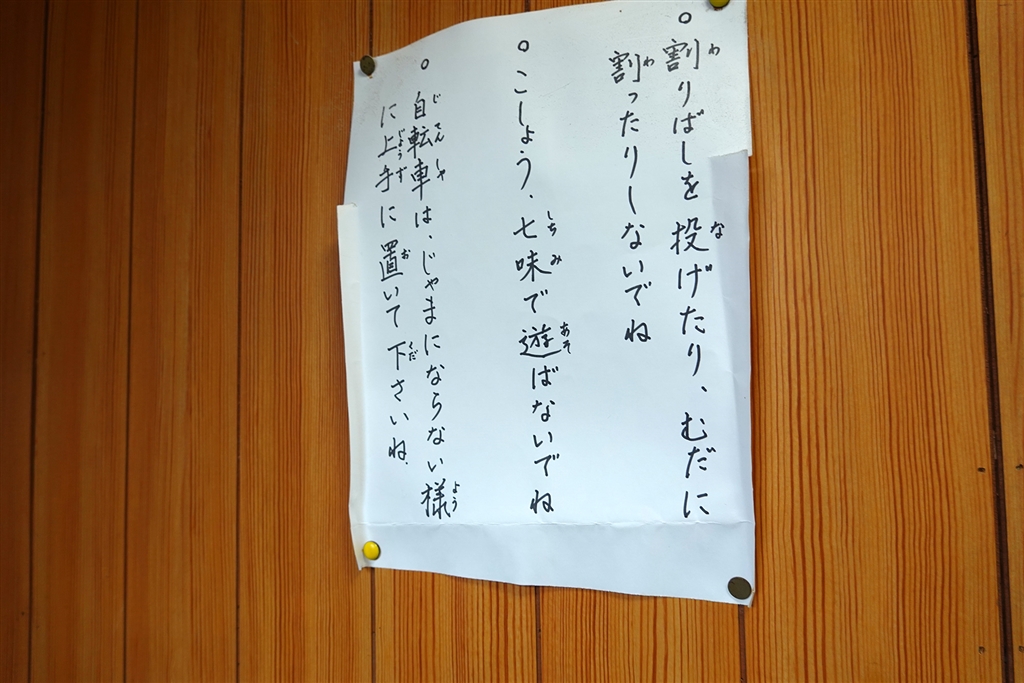 ○割りばしを投げたり、むだに
割ったりしないでね
○こしょう、七味で遊ばないでね
○自転車は、じゃまにならない様
に上手に置いて下さいね。